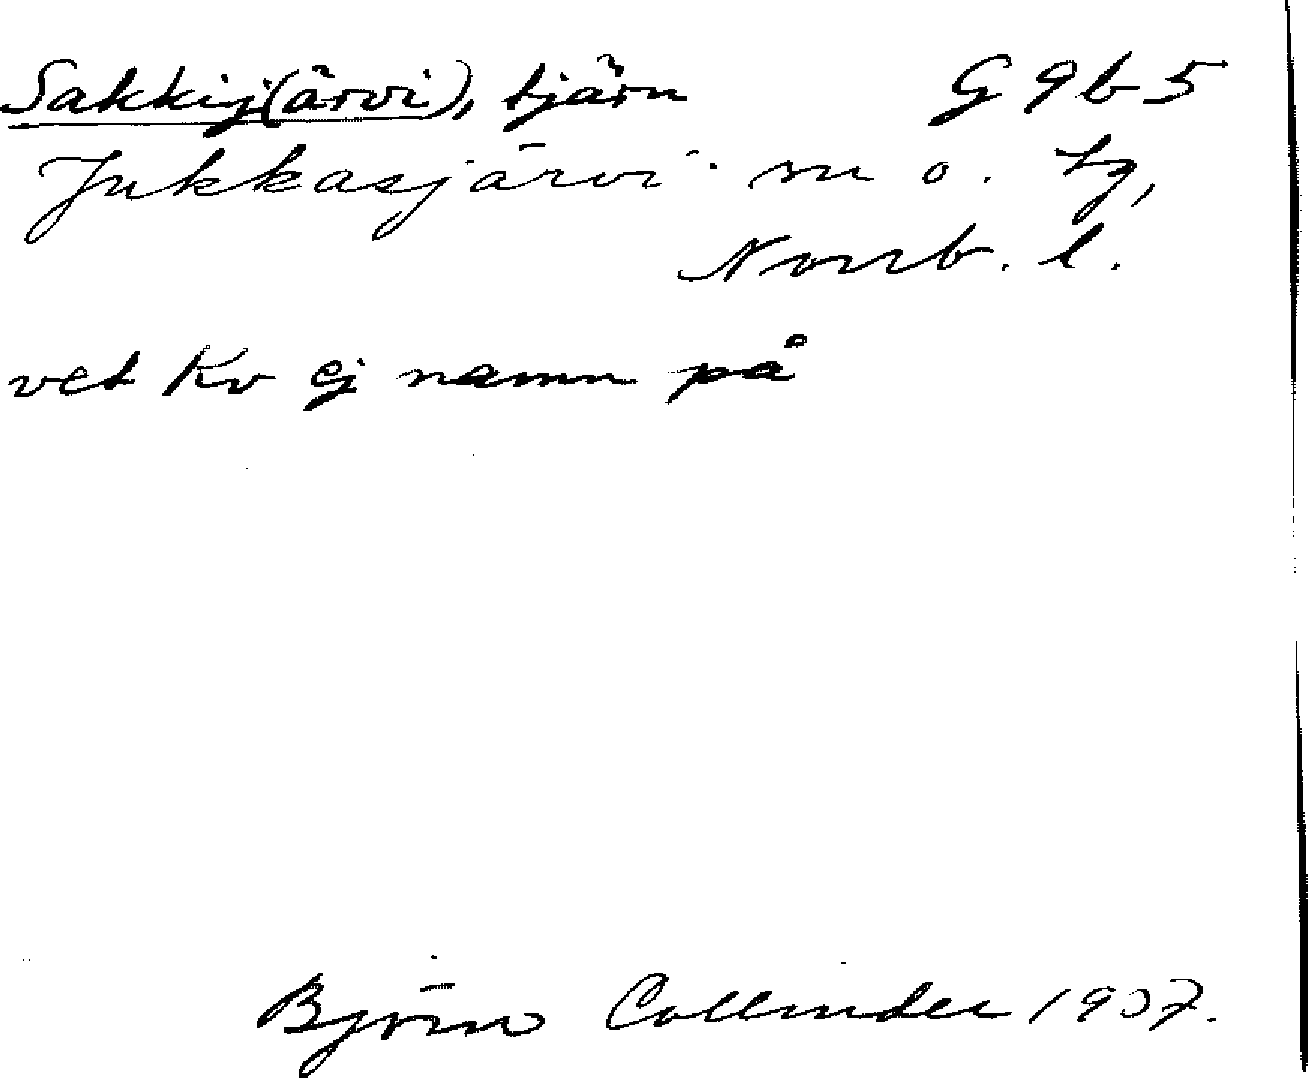 Sakkij(ärvi), tjärn G 9 b 5
Jukkasjärvi m o. tg,
Norrb. l.
vet Kv ej namn på
Björn Collinder 1937.